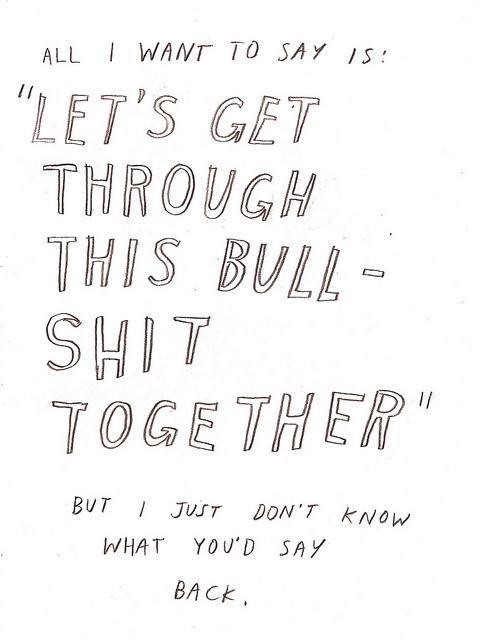 ALL I WANT TO SAY IS:
"LET'S GET
THROUGH
THIS BULL-
SHIT
TOGETHER"
BUT I JUST DON'T KNOW
WHAT YOU'D SAY
BACK.